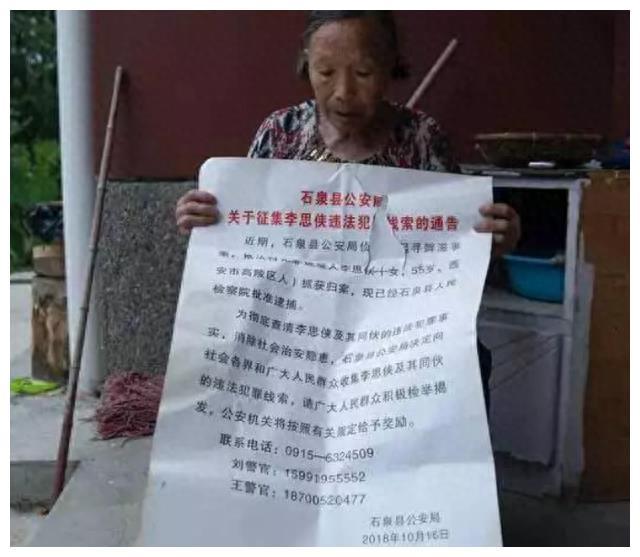 石泉县公安局
关于征集李思侠违法犯 线索的通告
近期，石泉县公安局 寻衅滋事
人李思侠（女，55岁，西
安市高陵区人）抓获归案，现已经石泉县人民
检察院批准逮捕。
为彻底查清李思侠及其同伙的违法犯罪事
实，消除社会治安隐患，石泉县公安局决定向
社会各界和广大人民群众收集李思侠及其同伙
的违法犯罪线索，请广大人民群众积极检举揭
发，公安机关将按照有关规定给予奖励。
联系电话：0915—6324509
刘警官：15991955552
王警官：18700520477
石泉县公安局
2018年10月16日